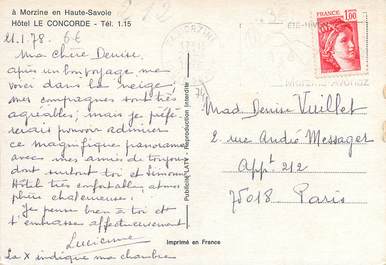 à Morzine en Haute-Savoie
Hôtel LE CONCORDE - Tél. 1.15
21.1.78. 6h
Ma chère Denise,
après un bon voyage me
voici dans la neige !
mes compagnes sont très
agréables ; mais je préfé-
rerais pouvoir admirer
ce magnifique panorama
avec mes amis de toujours
dont surtout toi et Simone
Hôtel très confortable, atmos
phère chaleureuse !
Je pense bien à toi et
t'embrasse affectueusement
Lucienne
La X indique ma chambre
Publicité "LATY" - Reproduction interdite
Imprimé en France
MORZINE
74
1,00
Mad. Denise Vuillet
2 rue André Messager
Appt 212
75018 Paris